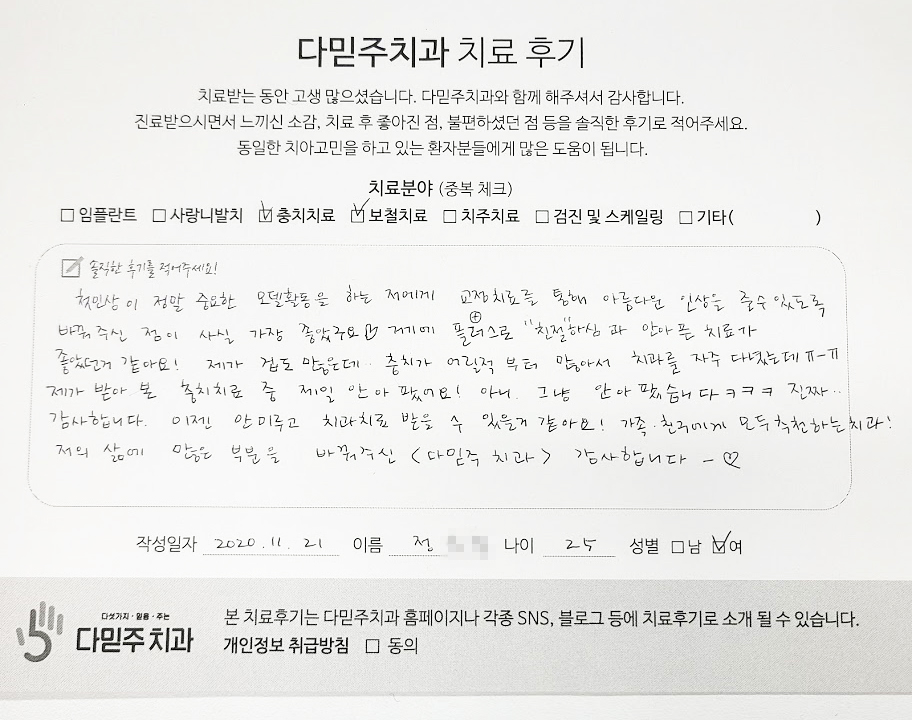 다믿주치과 치료 후기
치료받는 동안 고생 많으셨습니다. 다믿주치과와 함께 해주셔서 감사합니다.
진료받으시면서 느끼신 소감, 치료 후 좋아진 점, 불편하셨던 점 등을 솔직한 후기로 적어주세요.
동일한 치아고민을 하고 있는 환자분들에게 많은 도움이 됩니다.
치료분야 (중복 체크)
☐ 임플란트 ☐ 사랑니발치 ☑ 충치치료 ☑ 보철치료 ☐ 치주치료 ☐ 검진 및 스케일링 ☐ 기타( )
솔직한 후기를 적어주세요!
첫인상이 정말 중요한 모델활동을 하는 저에게 교정치료를 통해 아름다운 인상을 줄수있도록
바꿔주신 점이 사실 가장 좋았구요♡ 거기에 플러스로 "친절"하심과 안아픈 치료가
좋았던거 같아요! 제가 겁도 많은데.. 충치가 어릴적 부터 많아서 치과를 자주 다녔는데ㅠ-ㅠ
제가 받아 본 충치치료 중 제일 안아팠어요! 아니. 그냥 안아팠습니다ㅋㅋㅋ 진짜..
감사합니다. 이젠 안미루고 치과치료 받을 수 있을거 같아요! 가족·친구에게 모두추천하는치과!
저의 삶에 많은 부분을 바꿔주신 <다믿주 치과> 감사합니다 - ♡
작성일자 2020. 11. 21 이름 전 나이 25 성별 ☐남 ☑여
다섯가지 · 믿음 · 주는
다믿주치과
본 치료후기는 다믿주치과 홈페이지나 각종 SNS, 블로그 등에 치료후기로 소개 될 수 있습니다.
개인정보 취급방침 ☐ 동의